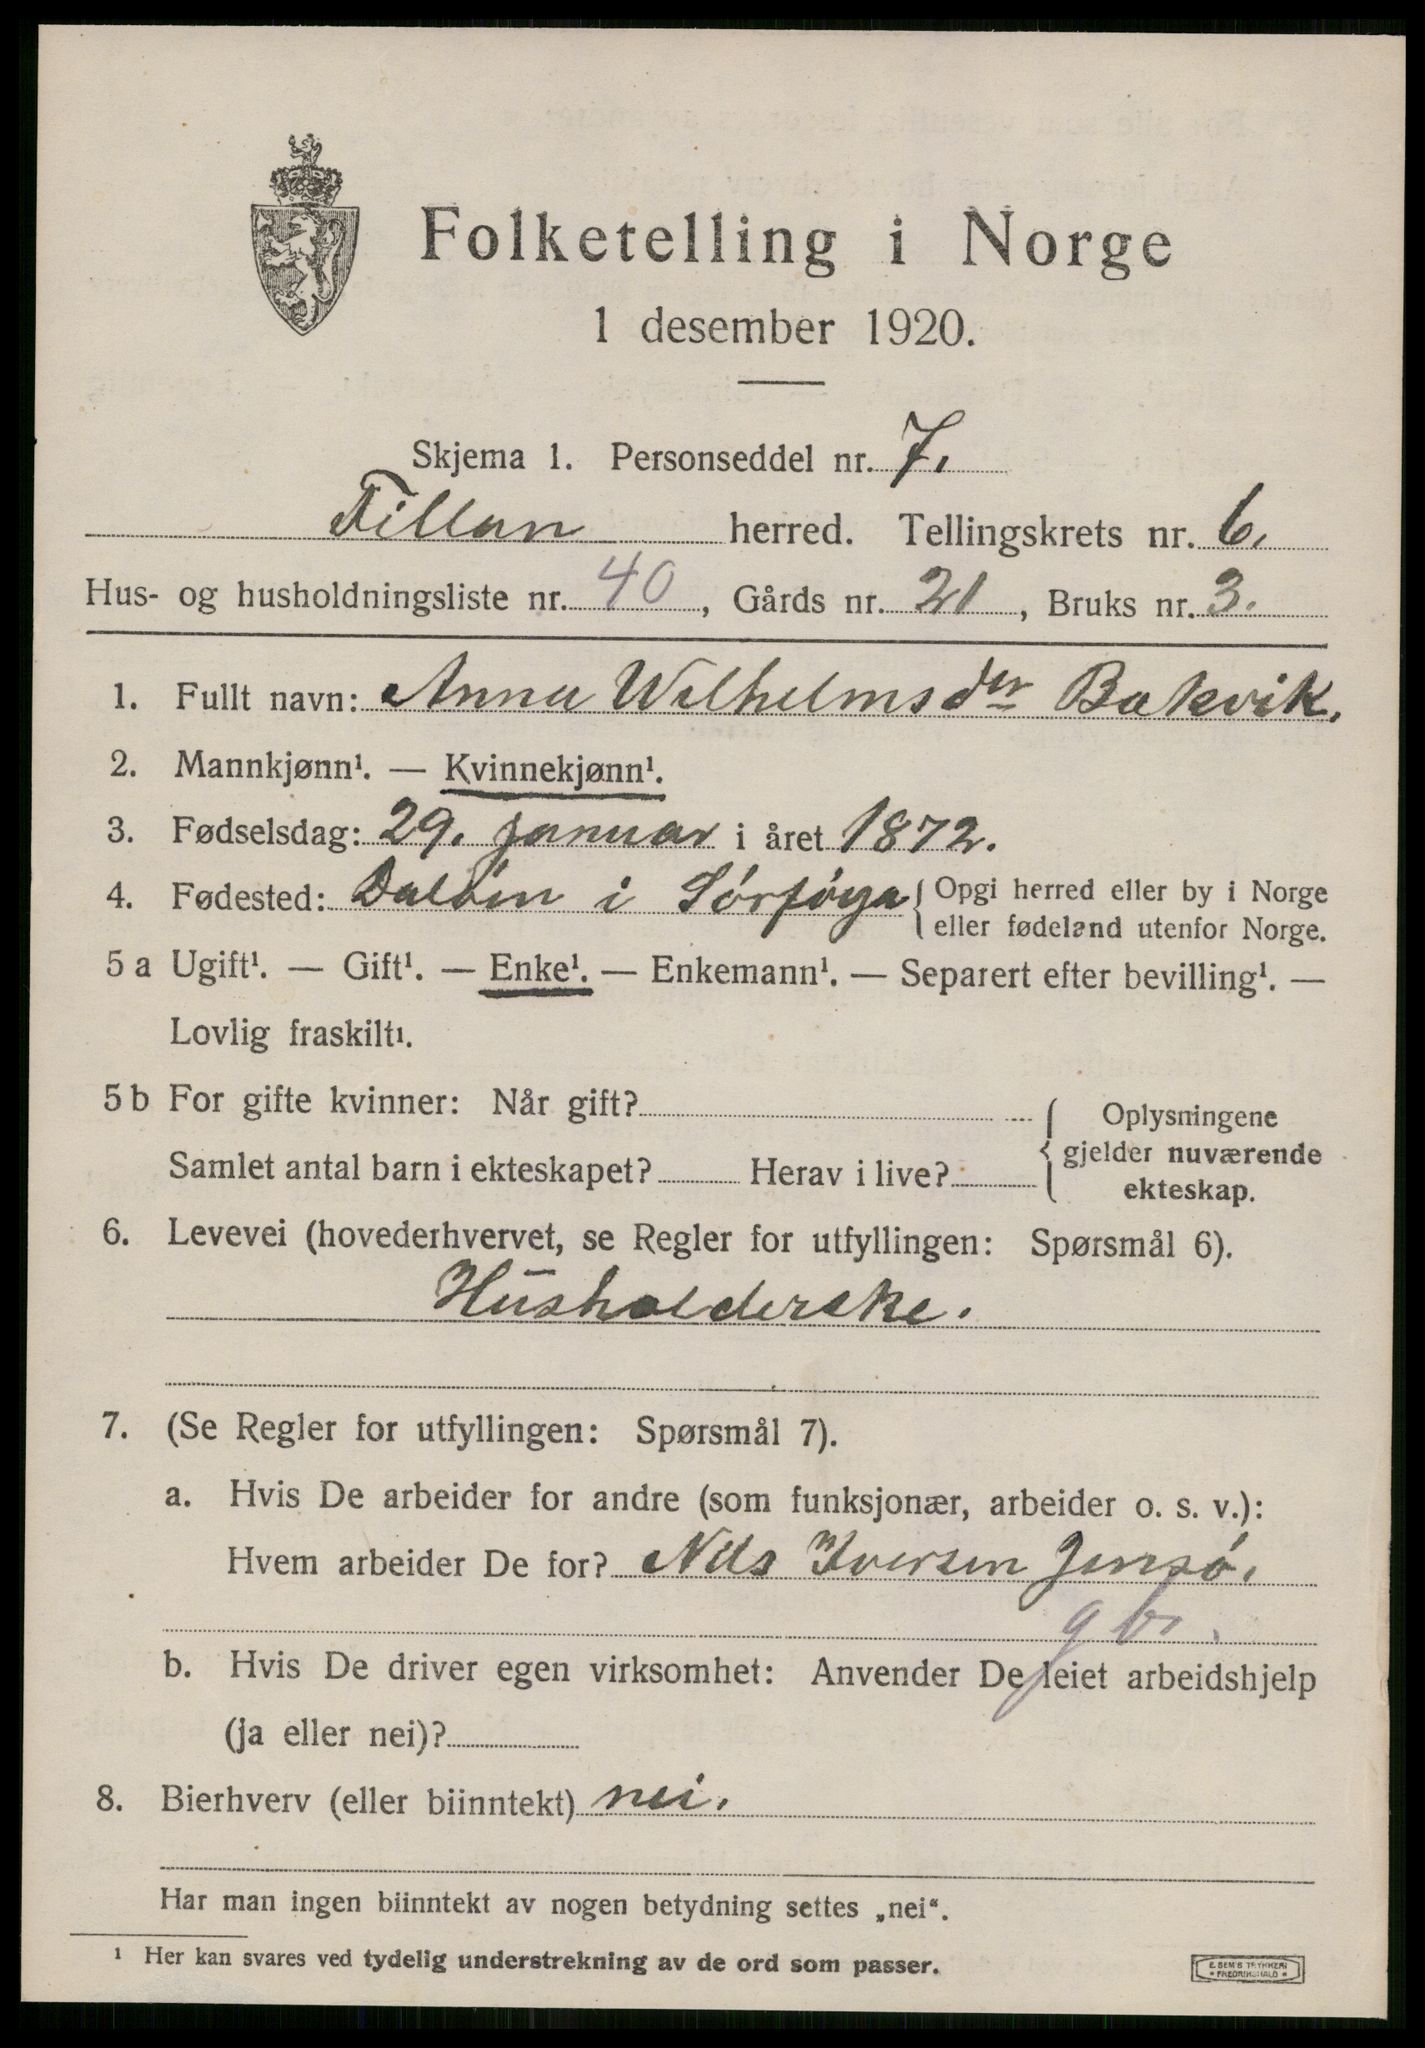 Folketelling i Norge
1 desember 1920.
Skjema 1. Personseddel nr. 7.
Fillan herred. Tellingskrets nr. 6.
Hus- og husholdningsliste nr. 40, Gårds nr. 21, Bruks nr. 3.
1. Fullt navn: Anna Wilhelmsdtr Bakvik.
2. Mannkjønn¹. — Kvinnekjønn¹.
3. Fødselsdag: 29. januar i året 1872.
4. Fødested: Daløen i Sørfrøya { Opgi herred eller by i Norge
eller fødeland utenfor Norge.
5 a Ugift¹. — Gift¹. — Enke¹. — Enkemann¹. — Separert efter bevilling¹. —
Lovlig fraskilt¹.
5 b For gifte kvinner: Når gift? { Oplysningene
gjelder nuværende
Samlet antal barn i ekteskapet? Herav i live? ekteskap.
6. Levevei (hovederhvervet, se Regler for utfyllingen: Spørsmål 6).
Husholderske.
7. (Se Regler for utfyllingen: Spørsmål 7).
a. Hvis De arbeider for andre (som funksjonær, arbeider o. s. v.):
Hvem arbeider De for? Nils Iversen Jensø.
gbr.
b. Hvis De driver egen virksomhet: Anvender De leiet arbeidshjelp
(ja eller nei)?
8. Bierhverv (eller biinntekt) nei.
Har man ingen biinntekt av nogen betydning settes „nei“.
¹ Her kan svares ved tydelig understrekning av de ord som passer.
E. SEM'S TRYKKERI
* FREDRIKSHALD *